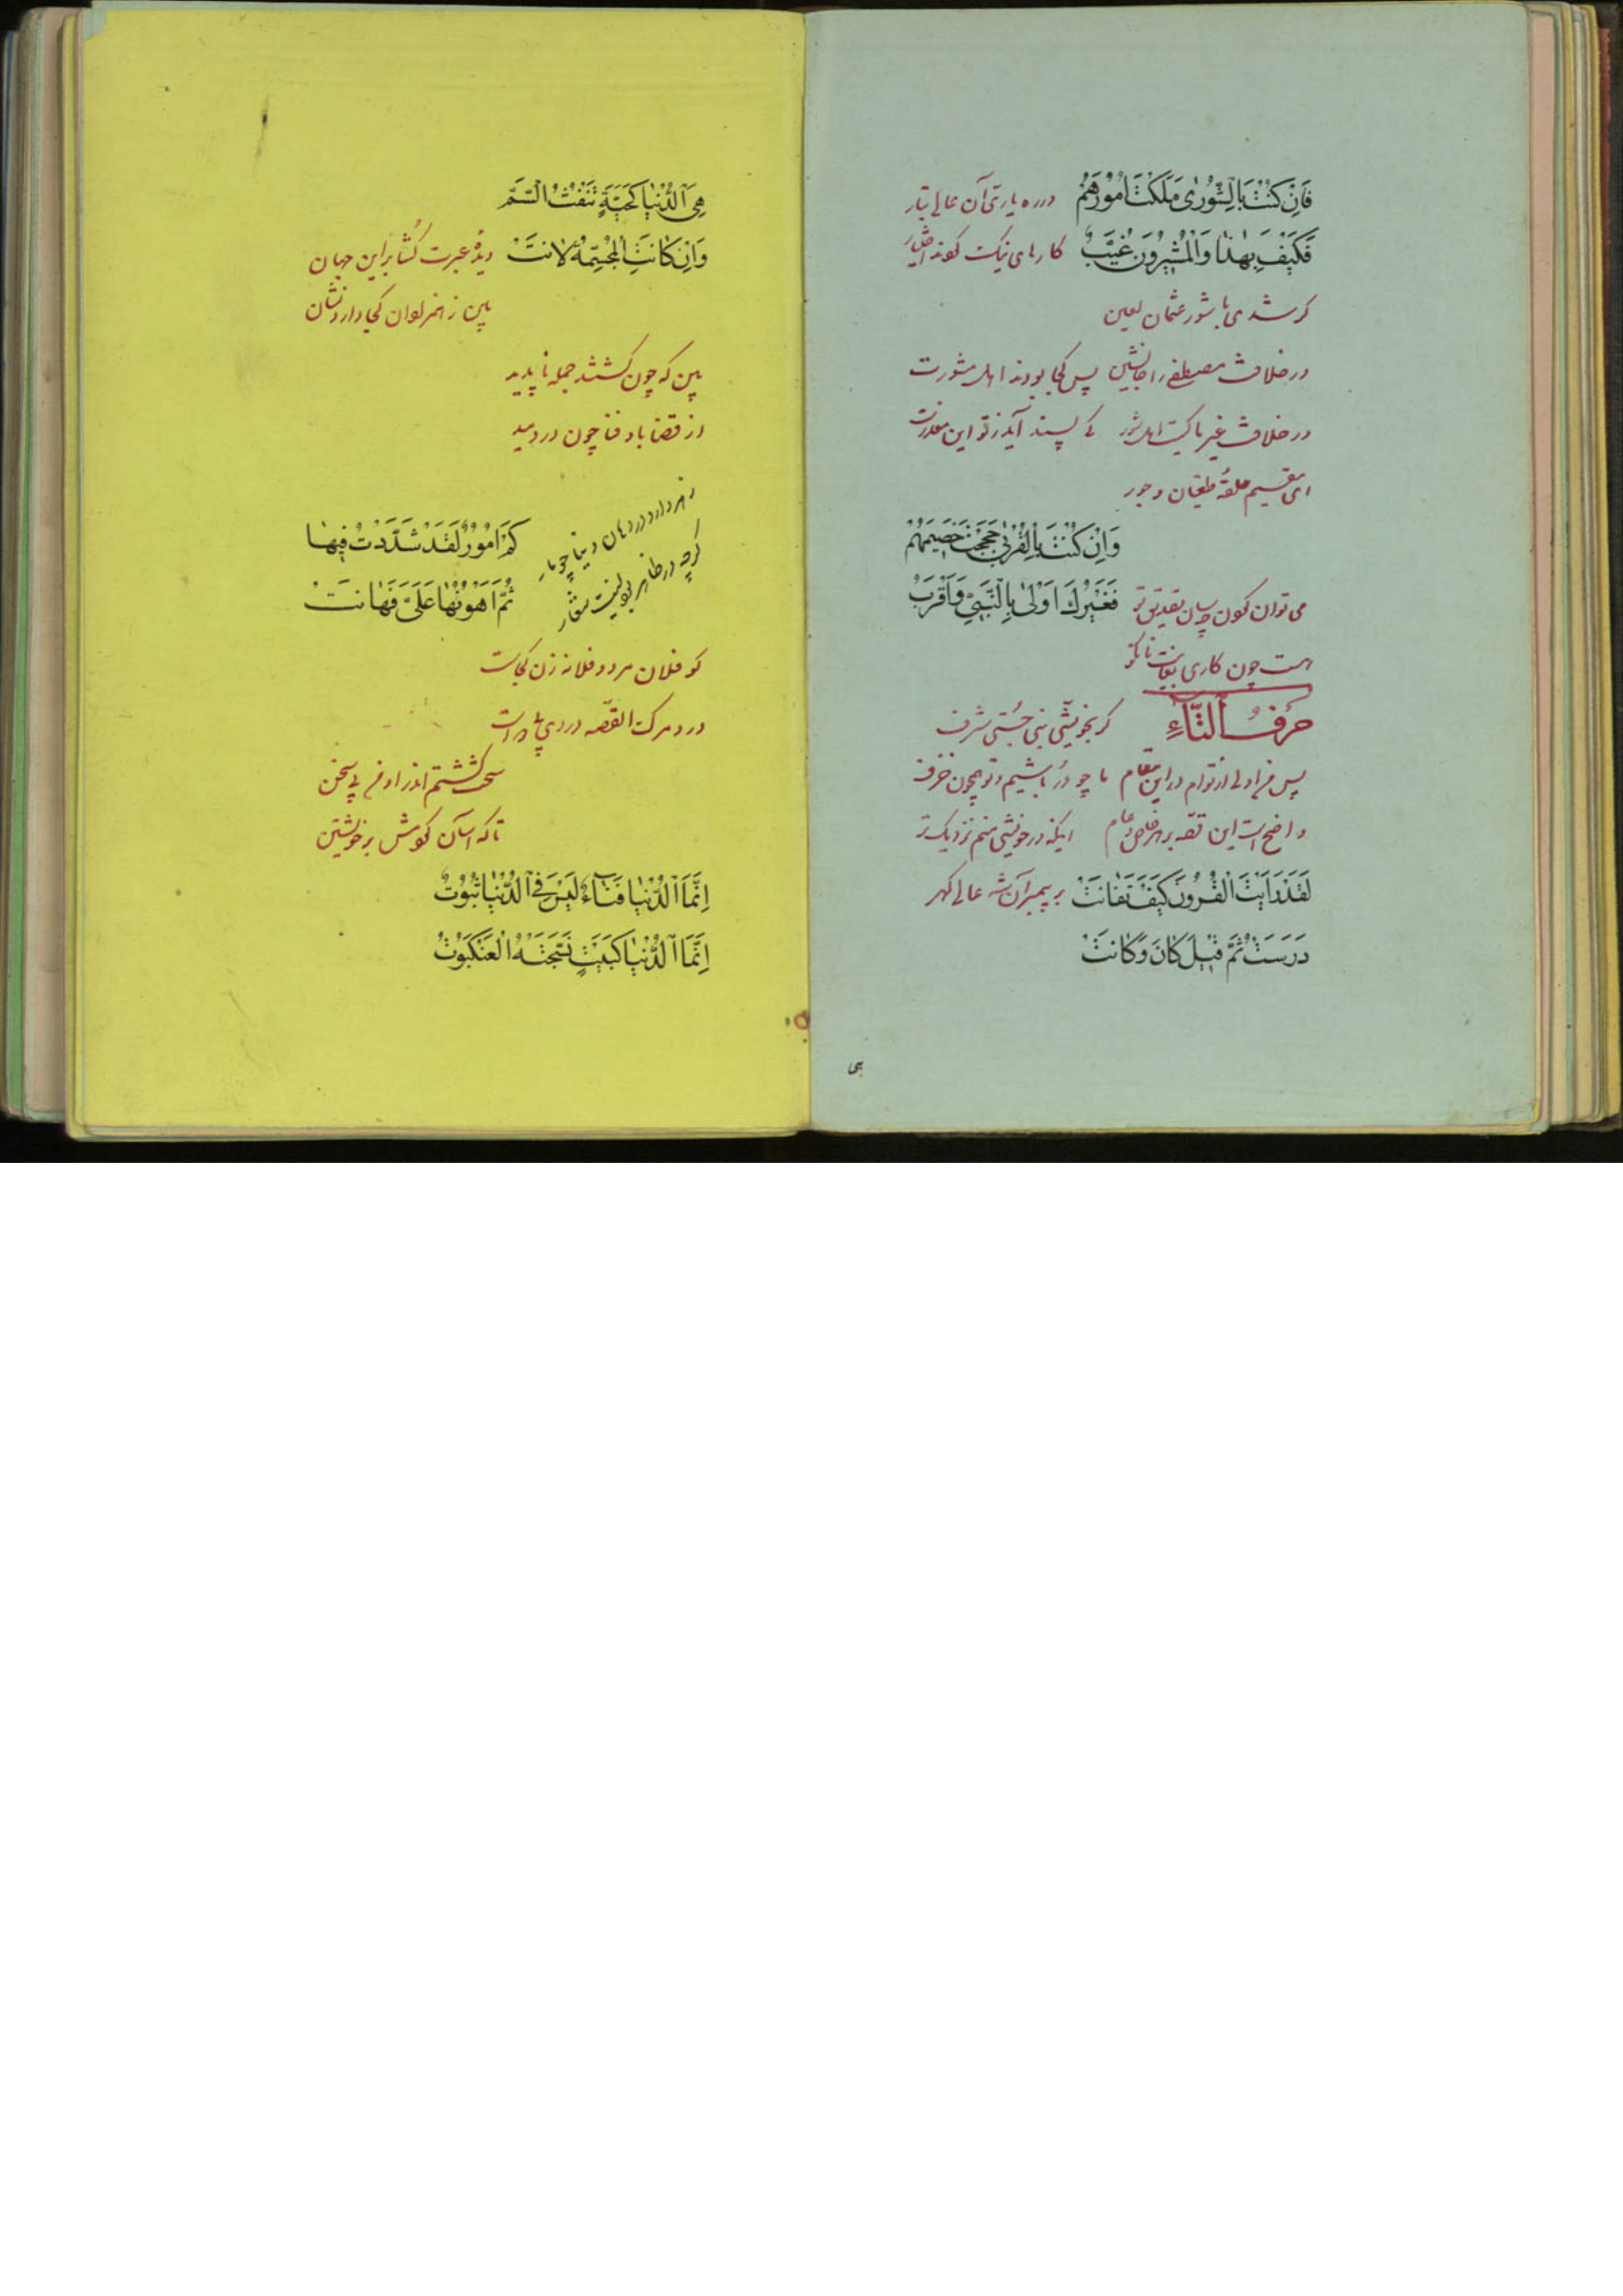 فَاِنْ كُنْتَ بِالشُّورٰى مَلَكْتَ اُمُورَهُمْ در ره یاری آن عالی تبار
فَكَيْفَ بِهٰذَا وَالْمُشيرُونَ غُيَّبٌ کارهای نیک کوند اختیار
کر شدی با شور عثمان لعین
در خلافت مصطفی را جانشین پس کجا بودند اهل مشورت
در خلافت غیر ما کیست اهل شور کی پسند آید ز تو این معذرت
ای مقیم حلقهٔ طغیان و جور
وَاِنْ كُنْتَ بِالْقُرْبٰى حَجَجْتَ خَصيمَهُمْ
فَغَيْرُكَ اَوْلٰى بِالنَّبِيِّ وَاَقْرَبُ می توان کون چسان تصدیق تو
هست چون کاری بغایت نانکو
حَرْفُ التَّاءِ کر بخویشی نبی جستی شرف
پس من اولی از توام در این مقام ما چو در باشیم و تو همچون خزف
واضح است این قصه بر هر خاص و عام اینکه در خویشی منم نزدیک تر
لَقَدْ رَاَيْتَ الْقُرُونَ كَيْفَ تَفَانَتْ بر پیمبر آن شه عالی کهر
دَرَسَتْ ثُمَّ قيلَ كَانَ وَكَانَتْ
هی
هِيَ الدُّنْيَا كَحَيَّةٍ تَنْفُثُ السَّمَّ
وَاِنْ كَانَتِ الْمَجَسَّةُ لَانَتْ دیدهٔ عبرت کشا بر این جهان
بین ز اهر لوان کجا دارد نشان
بین که چون کشتند جمله ناپدید
از قضا باد فنا چون در دمید
زهر دارد در دهان دنیا چو مار
کرچه در ظاهر بود لینت شعار
كَمْ اُمُورٍ لَقَدْ شَدَّدْتُ فيهَا
ثُمَّ اَهَوْنْتُهَا عَلَيَّ فَهَانَتْ
کو فلان مرد و فلانه زن کجاست
درد مرک القصه دردی بی دواست
سخت کشتم اندر او فر بی سخن
تا که آسان کومش بر خویشتن
اِنَّمَا الدُّنْيَا فَنَاءٌ لَيْسَ فِي الدُّنْيَا ثُبُوتٌ
اِنَّمَا الدُّنْيَا كَبَيْتٍ نَسَجَتْهُ الْعَنْكَبُوتُ